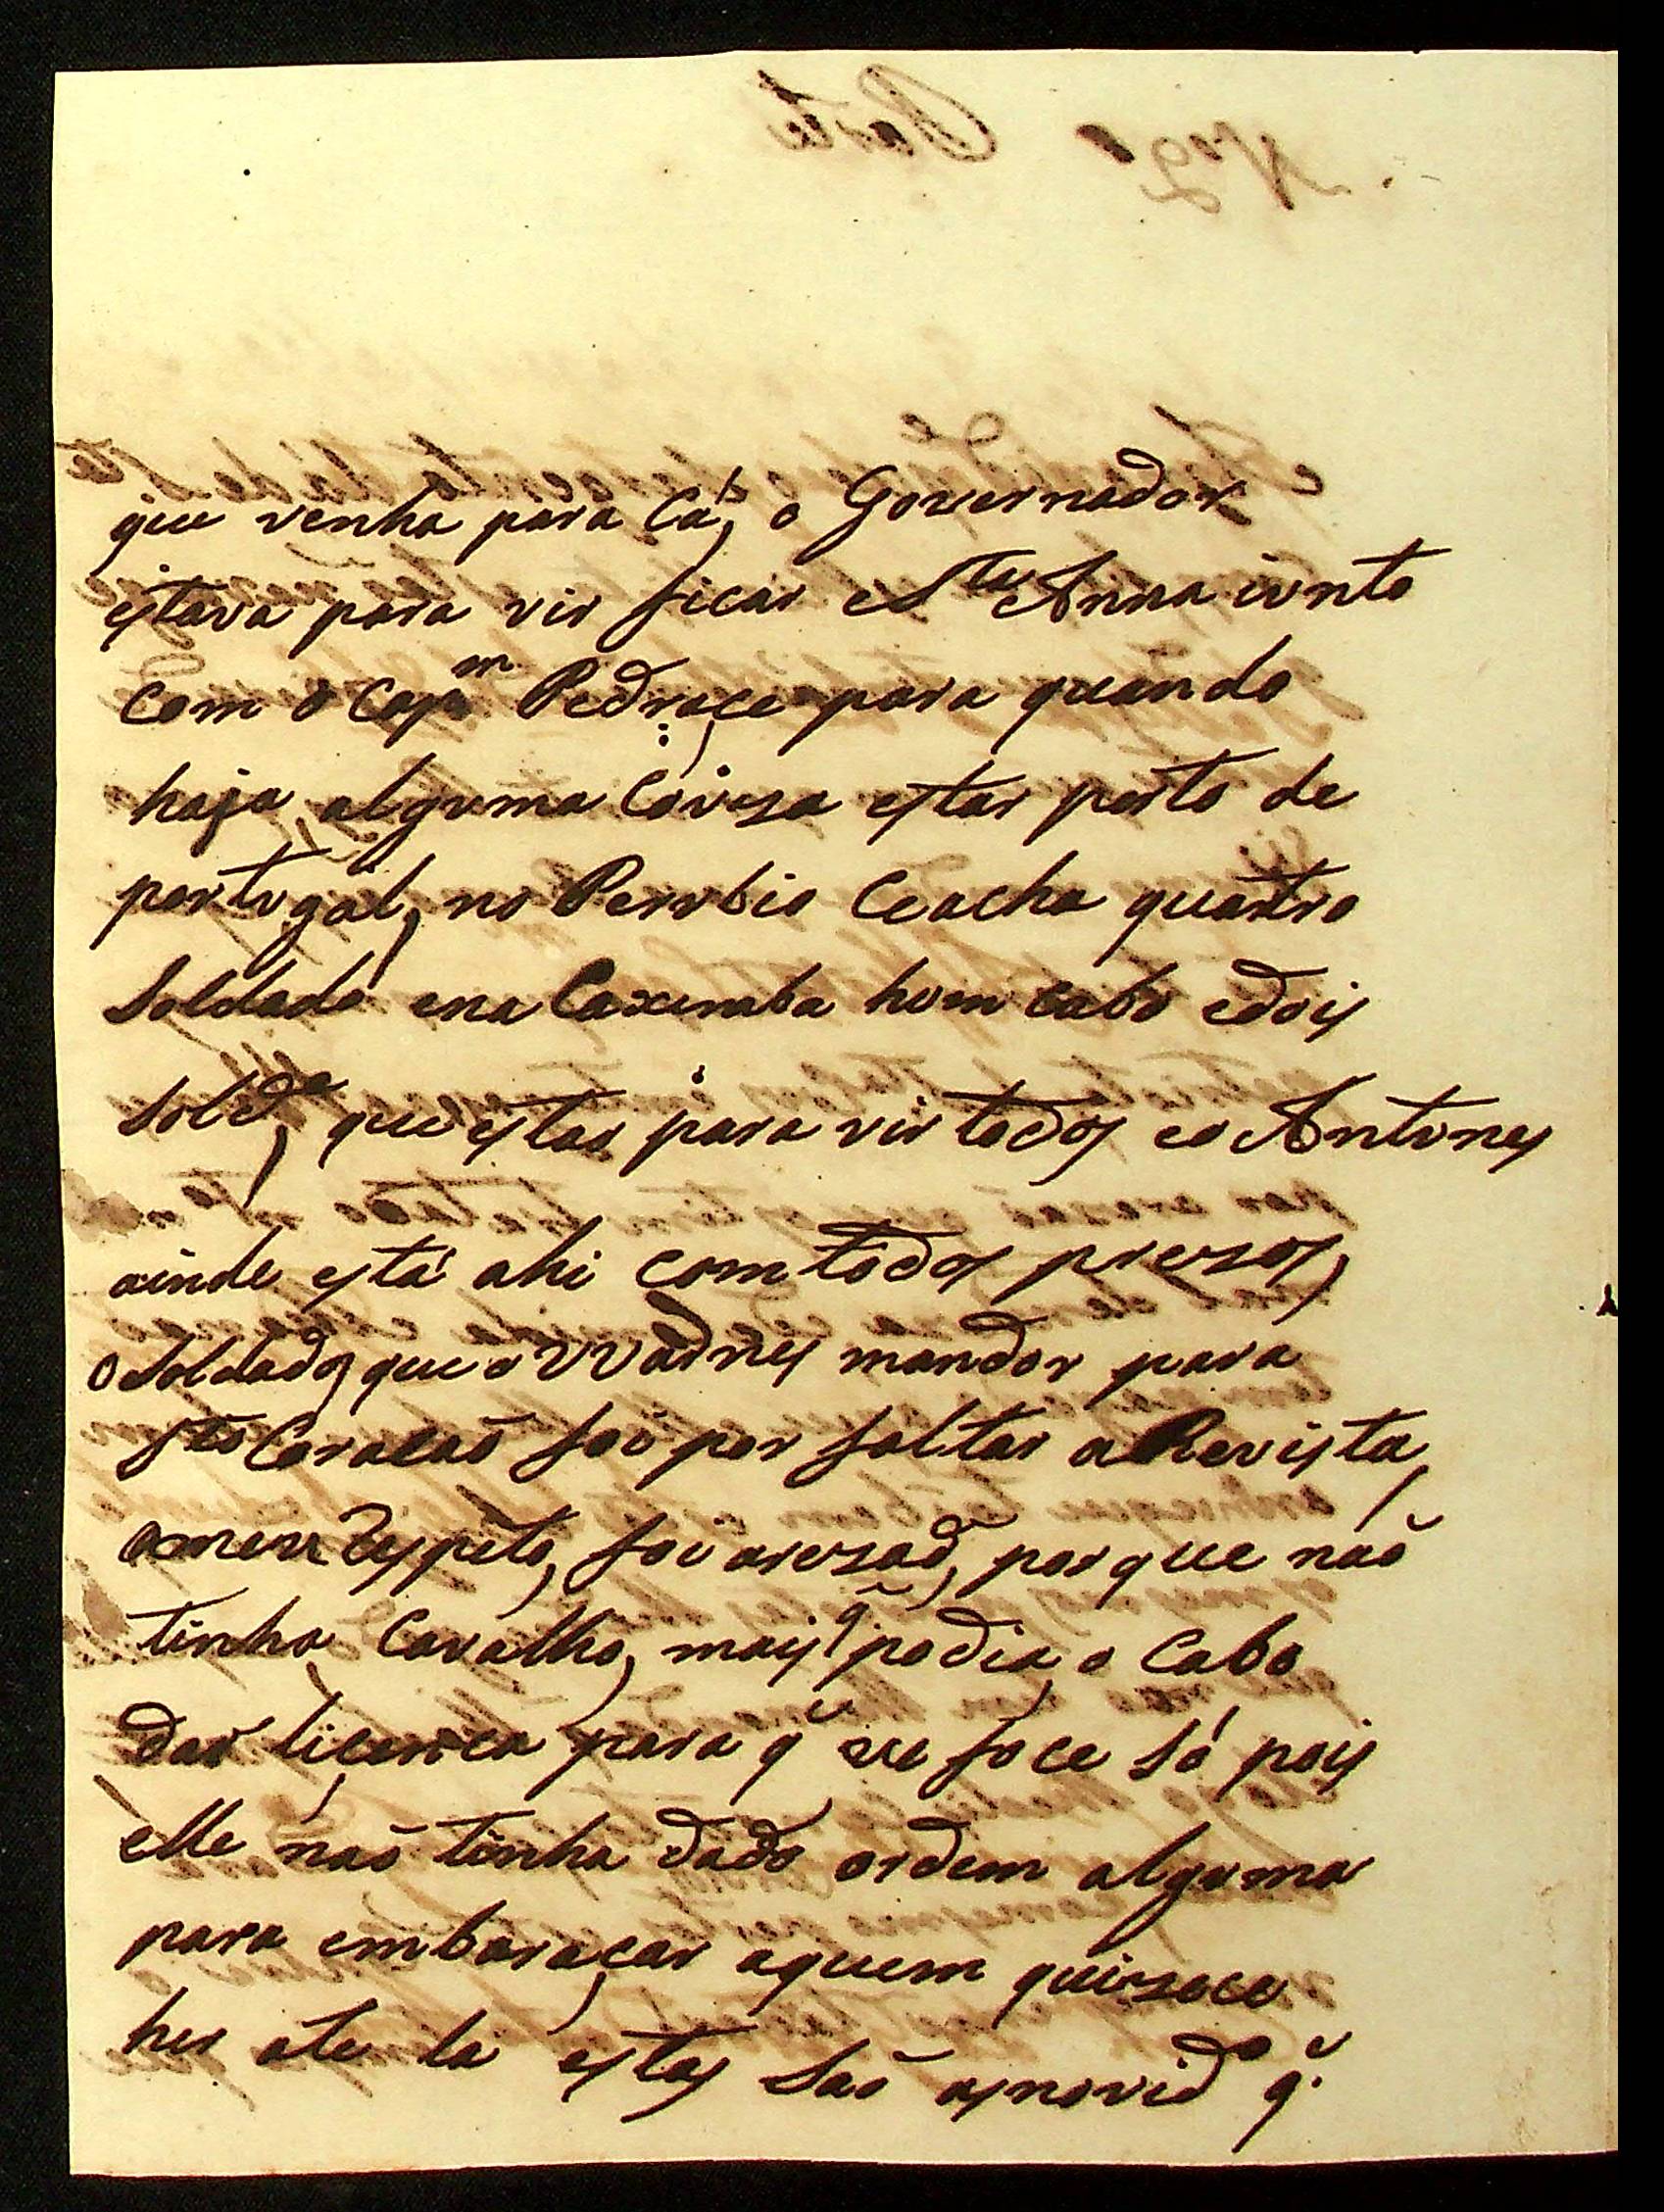 que venha para Cá, o Governador
estava para vir ficar e Sta Anna iunto
Com o Capm Pedraça para quando
haja alguma Couza estar perto de
portugal, no Perubio Ceacha quatro
Soldado ena Caxueraba hum cabo edois
Solds, que estao para vir todos eo Antunes
ainde está ahi com todos prezos,
O Soldados que o mandou para
Sto Coracaõ foi por faltar a Revista,
foi arezaõ, porque naõ
tinha Cavalho, mais q̃ podia o Cabo
dar licença para q̃ se foce Só pois
elle naõ tinha dado ordem alguma
para embaraçar aquem quizece
hir ate la estas Saõ asnovido q̃.